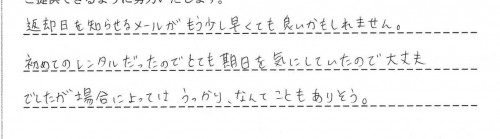 ご提供できるように努力いたします。
返却日を知らせるメールがもう少し早くても良いかもしれません。
初めてのレンタルだったのでとても期日を気にしていたので大丈夫
でしたが場合によっては うっかり、なんてこともありそう。